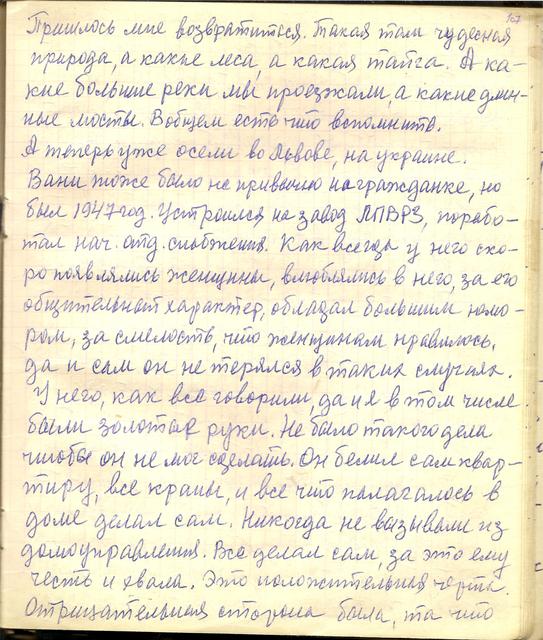 107
Пришлось мне возвратиться. Такая там чудесная
природа, а какие леса, а какая тайга. А ка-
кие большие реки мы проезжали, а какие длин-
ные мосты. Вобщем есть что вспомнить.
А теперь уже осели во Львове, на украине.
Вани тоже было не привычно на гражданке, но
был 1947 год. Устроился на завод ЛПВРЗ, порабо-
тал нач. отд. снабжения. Как всегда у него ско-
ро появлялись женщины, влюблялись в него, за его
общительный характер, обладал большим юмо-
ром, за смелость, что женщинам нравилось,
да и сам он не терялся в таких случаях.
У него, как все говорили, да и я в том числе
были золотые руки. Не было такого дела
чтобы он не мог сделать. Он белил сам квар-
тиру, все краны, и все что палагалось в
доме делал сам. Никогда не вызывали из
домоуправления. Все делал сам, за это ему
честь и хвала. Это положительная черта.
Отрицательная сторона была, та что